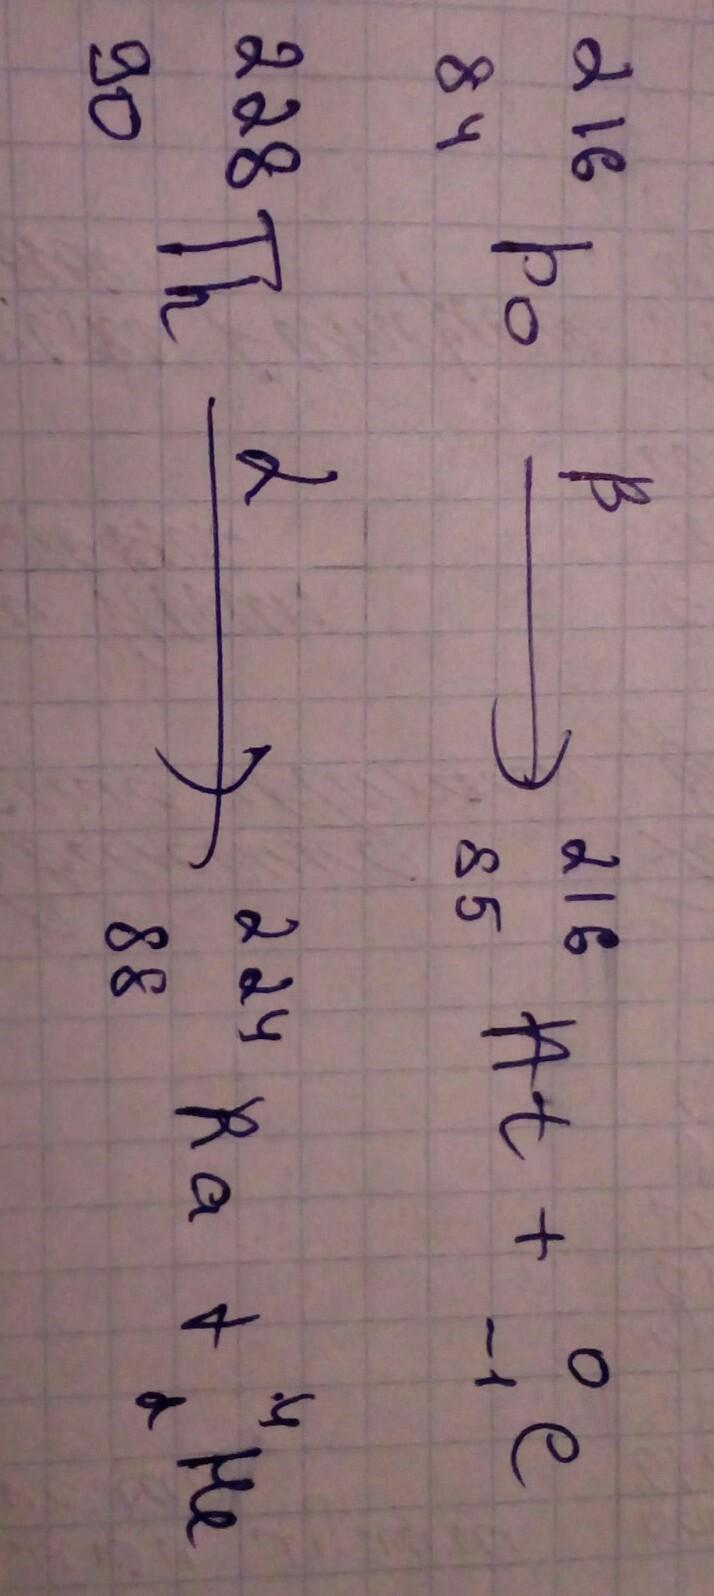 ²¹⁶₈₄Po β→ ²¹⁶₈₅At + ⁰₋₁e
²²⁸₉₀Th α→ ²²⁴₈₈Ra + ⁴₂He